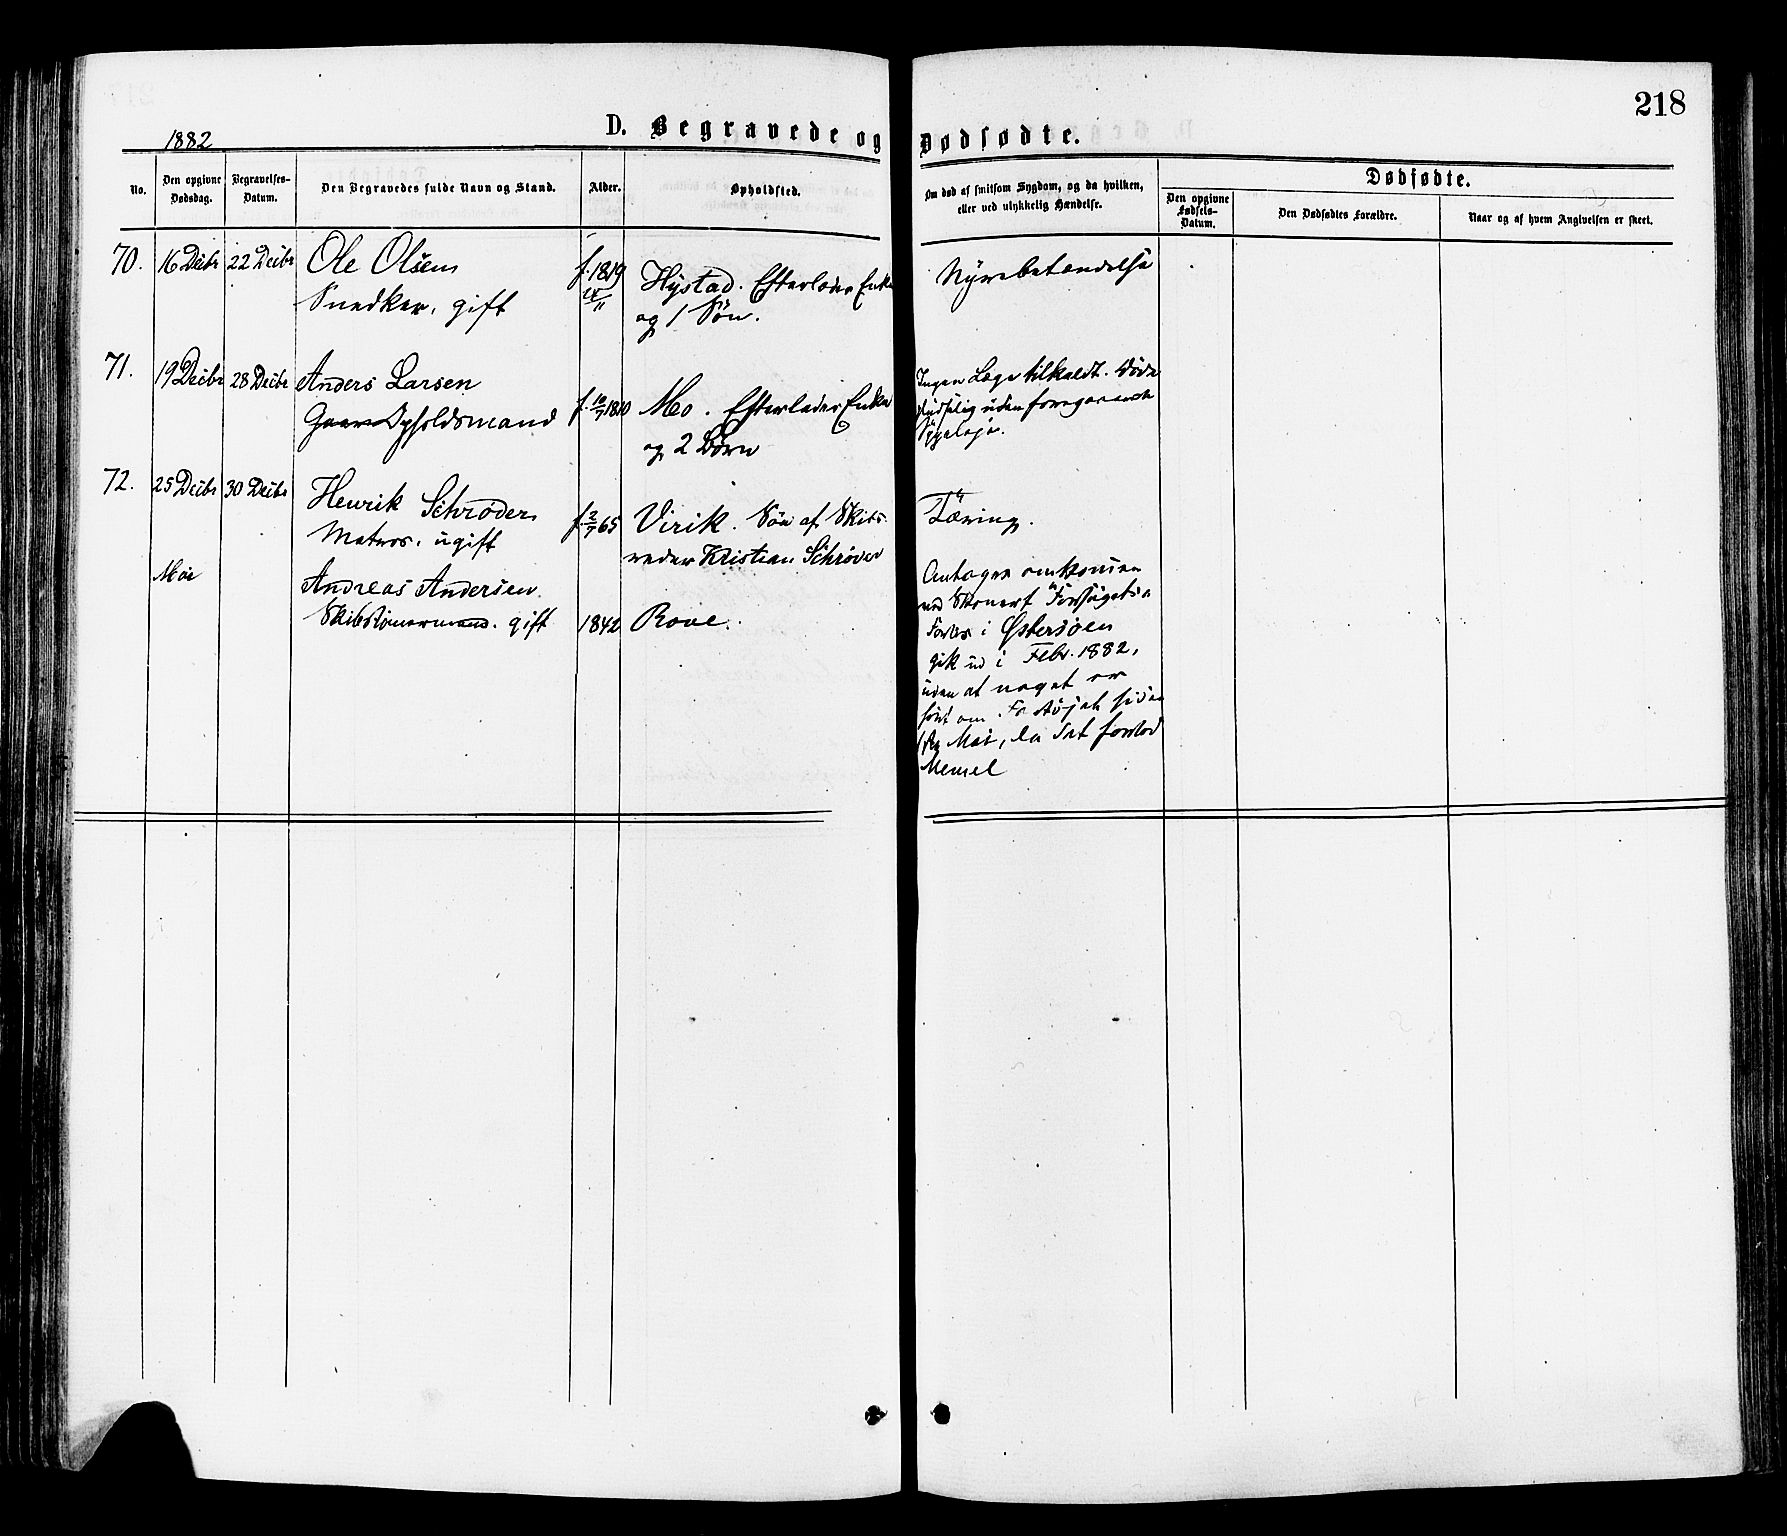 218
1882
D. Begravede og Dødfødte.
No.
Den opgivne Dødsdag.
Begravelses-Datum.
Den Begravedes fulde Navn og Stand.
Alder.
Opholdsted.
Om død af smitsom Sygdom, og da hvilken,
eller ved ulykkelig Hændelse.
Dødfødte.
Den opgivne Fødsels-Datum.
Den Dødfødtes Forældre.
Naar og af hvem Angivelsen er skeet.
70. 16 Decbr 22 Decbr Ole Olsen f. 1819
Snedker, gift
Hystad. Efterlader Enke
og 1 Søn.
Nyrebetændelse
71. 19 Decbr 28 Decbr Anders Larsen
Opholdsmand f. 10/7 1810 Mo. Efterlader Enke
og 2 Børn
Ingen Læge tilkaldt. Døde
pludselig uden foregaaende
Sygeleje.
72. 25 Decbr 30 Decbr Henrik Schrøder
Matros, ugift f. 2/7 65 Virik. Søn af Skibs
reder Kristian Schrøder
Tæring.
Mai Andreas Andersen
Skibstømermand. gift 1842 Rove.
Antages omkommen
med Skonert "Forsøget" a
i Østersøen
gik ud i Febr. 1882,
uden at noget er
hørt om Fartøjet siden
Mai, da det forlod
Memel